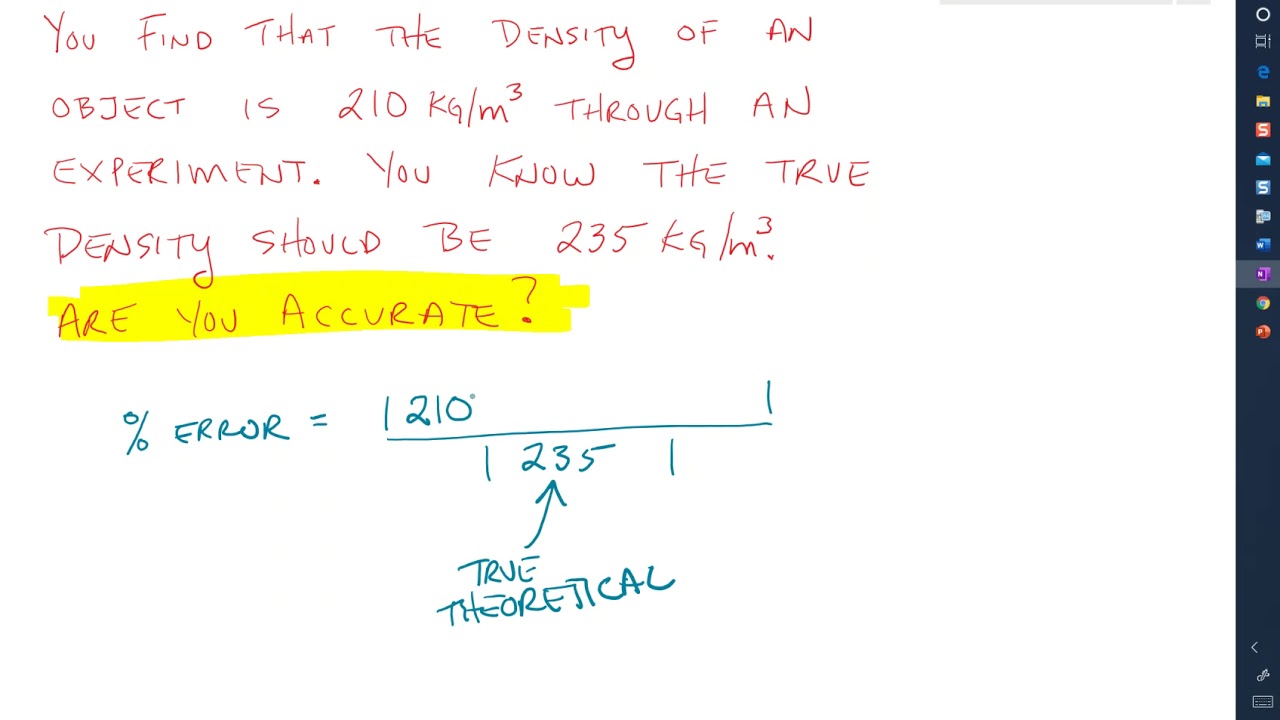 YOU FIND THAT THE DENSITY OF AN
OBJECT IS 210 KG/m³ THROUGH AN
EXPERIMENT. YOU KNOW THE TRUE
DENSITY SHOULD BE 235 KG/m³.
ARE YOU ACCURATE?
% ERROR = | 210 |
| 235 |
TRUE
THEORETICAL